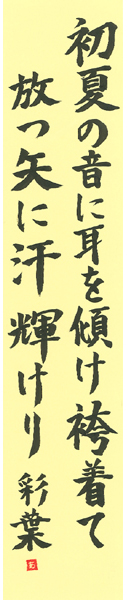 初夏の音に耳を傾け袴着て
放つ矢に汗輝けり 彩葉